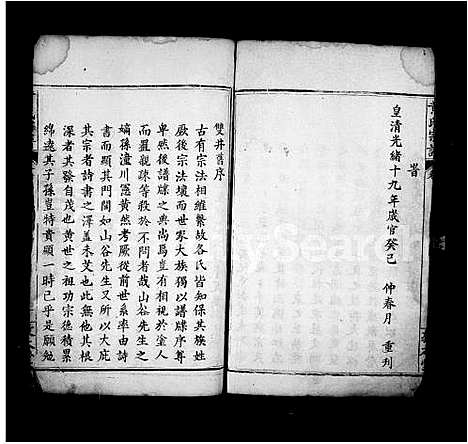 黃氏宗譜
首
皇清光緒十九年歲官癸巳 仲春月 重刊
雙井舊序
古有宗法相維繫故各氏皆知保其族姓
厥後宗法壞而世家大族獨以譜牒序尊
卑然後譜牒之尚焉豈有視此而愈人
而羅親疎等殺於不問者哉山谷先生之
嫡孫潼川憲黃然考厥從前世系率由詩
書而顯大其門閭如山谷先生又所以大庇
其宗者詩書之澤蓋未艾也此無他其根
深者其發自茂也黃世之祖功宗德積累
綿遠其子孫豈特貴顯一時已乎是願勉